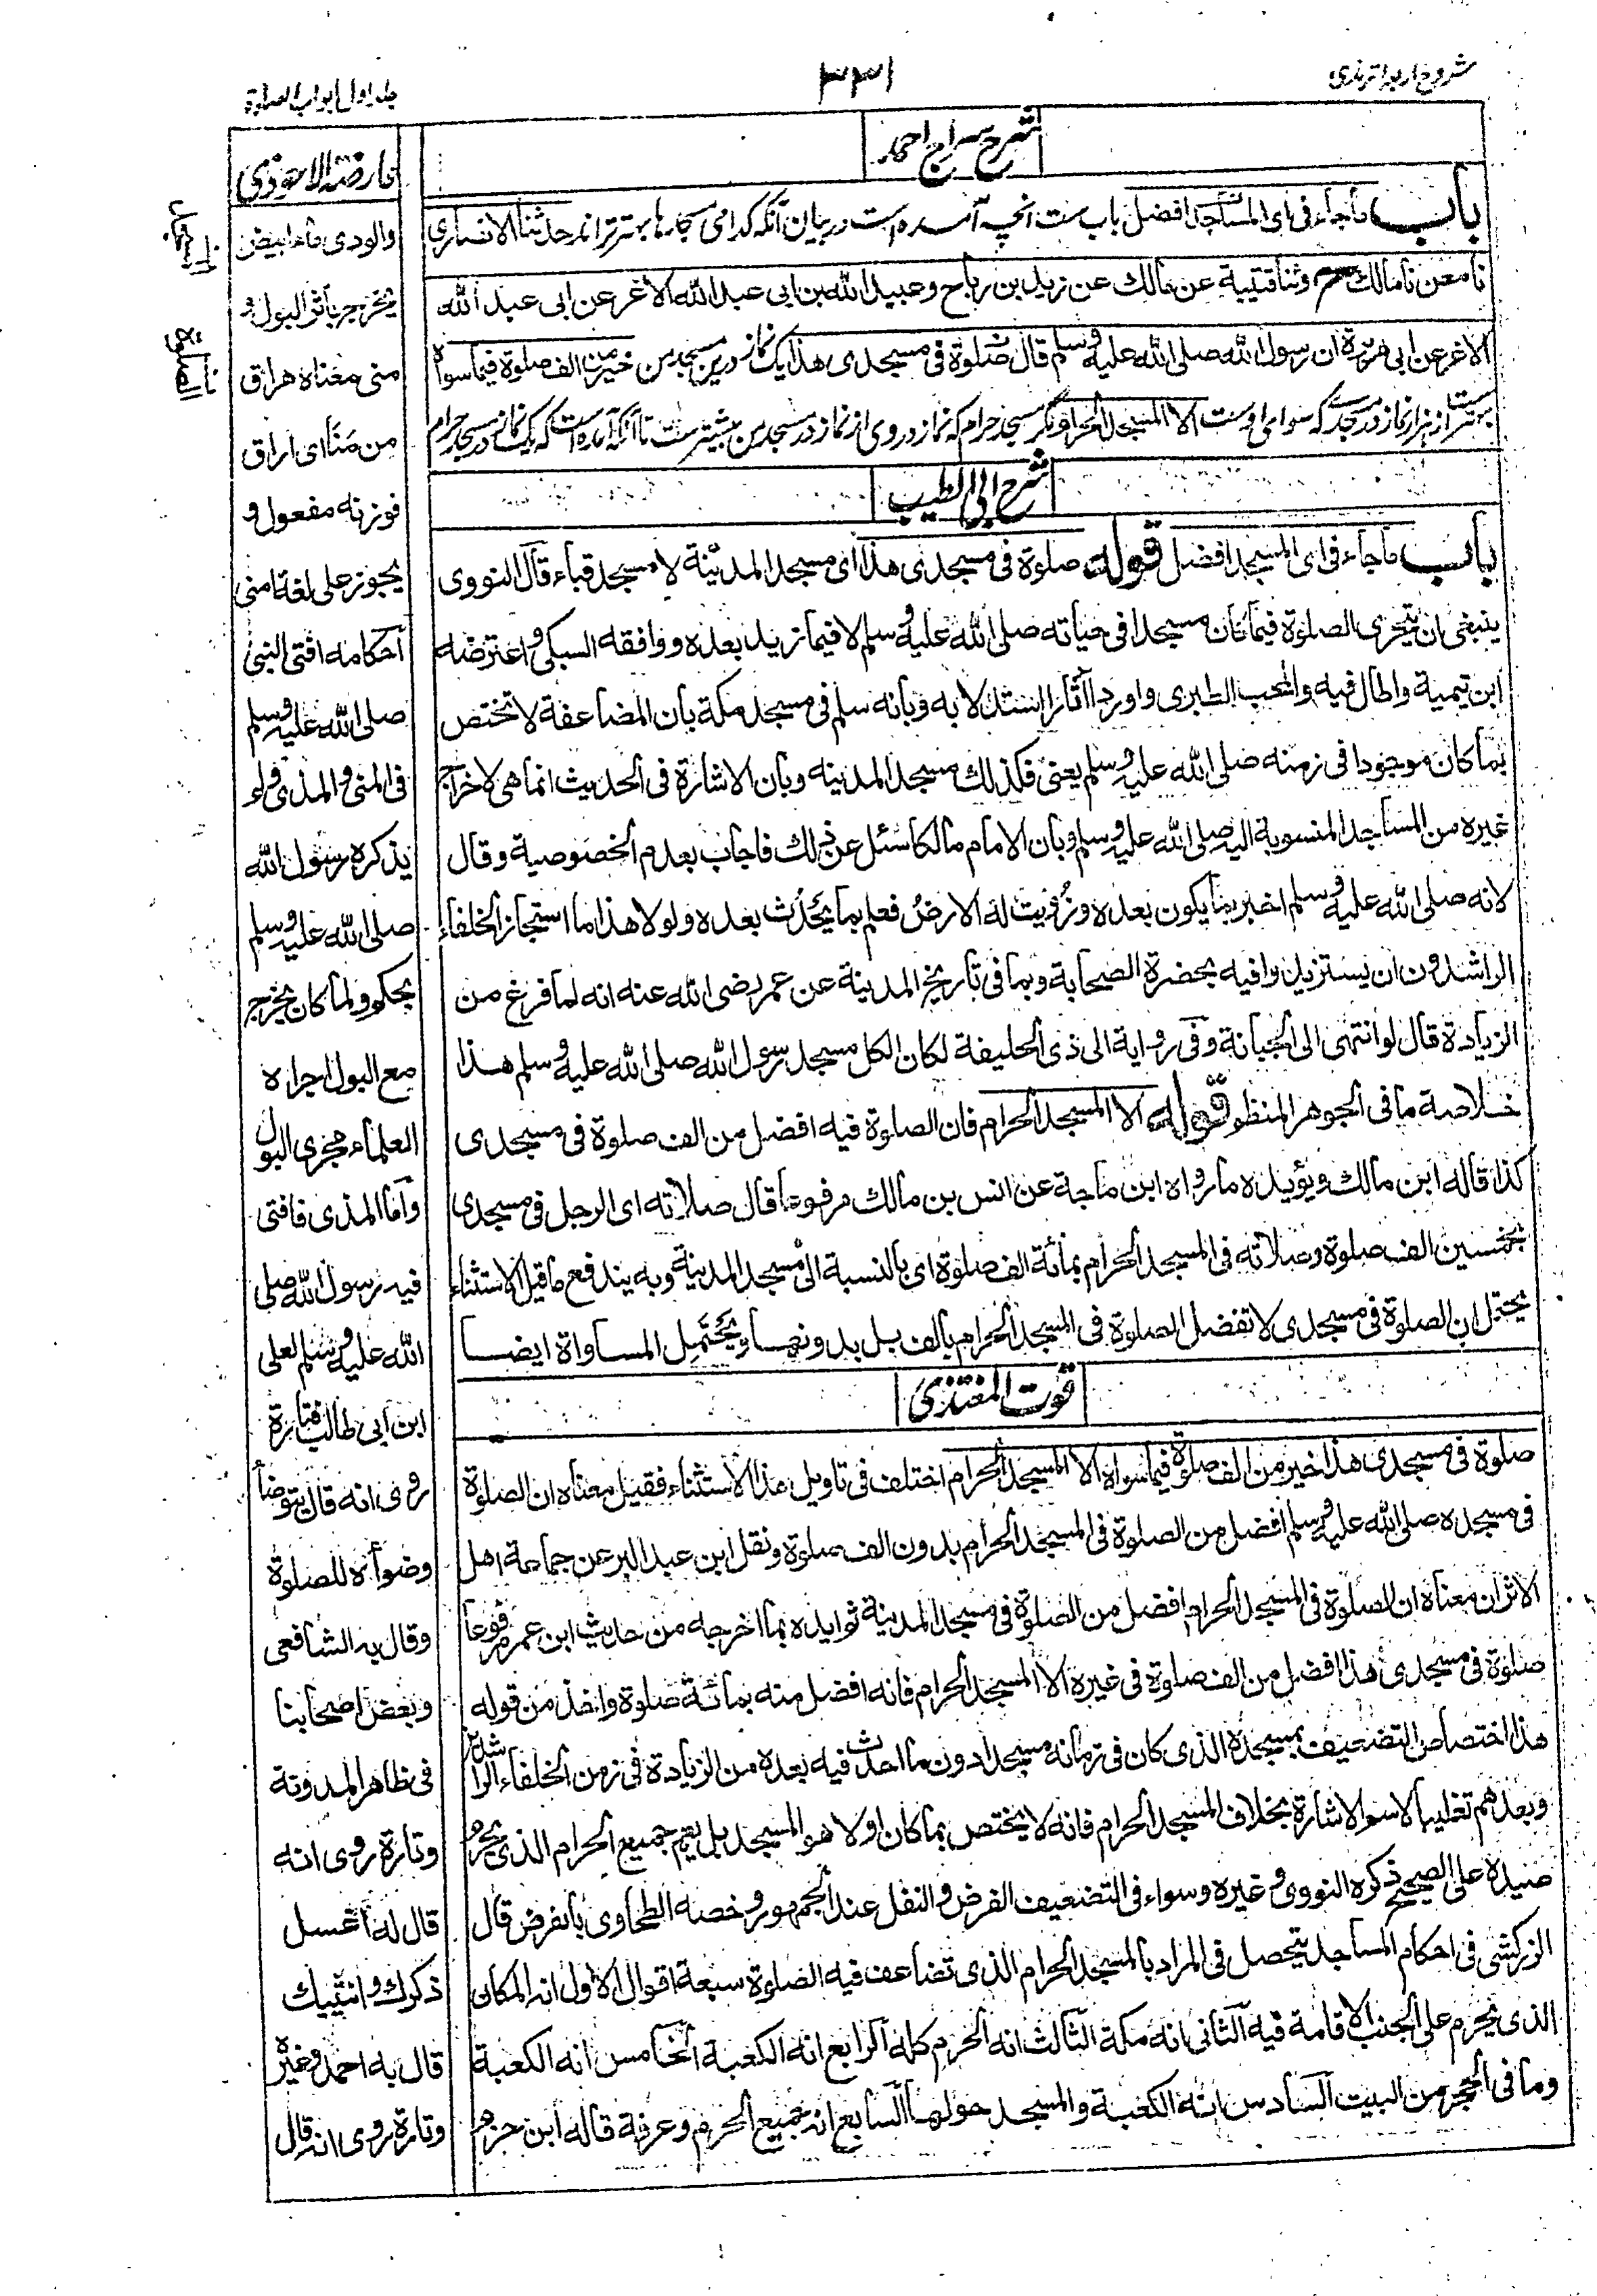 شروح اربعہ ترمذی
۳۳۱
جلد اول ابواب الصلوة
شرح سراج احمد
باب ما جاء فى اى المساجد افضل باب ست انچہ آمدہ است در بیان آنکہ کدامی مسجدہا بہتر تراند حدثنا الانصارى
نا معن نا مالك ح وثنا قتيبة عن مالك عن زيد بن رباح وعبيد الله بن ابى عبد الله الاغر عن ابى عبد الله
الاغر عن ابى هريرة ان رسول الله صلى الله عليه وسلم قال صلوة فى مسجدى هذا یک نماز درین مسجد من خير من الف صلوة فيما سواه
بہتر است از ہزار نماز در مسجدے کہ سوای اوست الا المسجد الحرام مگر مسجد حرام کہ نماز در وی از نماز در مسجد من بیشتر ست تا آنکہ آمدہ است کہ یک نماز در مسجد حرام
شرح ابى الطيب
باب ما جاء فى اى المسجد افضل قوله صلوة فى مسجدى هذا اى مسجد المدينة لا مسجد قباء قال النووى
ينبغى ان يتحرى الصلوة فيما كان مسجدا فى حياته صلى الله عليه وسلم لا فيما زيد بعده ووافقه السبكى واعترضه
ابن تيمية واطال فيه والمحب الطبرى واورد آثارا استدلا به وبانه سلم فى مسجد مكة بان المضاعفة لا تختص
بما كان موجودا فى زمنه صلى الله عليه وسلم يعنى فكذلك مسجد المدينه وبان الاشارة فى الحديث انما هى لاخراج
غيره من المساجد المنسوبة اليه صلى الله عليه وسلم وبان الامام مالكا سئل عن ذلك فاجاب بعدم الخصوصية وقال
لانه صلى الله عليه وسلم اخبر بما يكون بعده وزُويت له الارضُ فعلم بما يَحْدُث بعده ولولا هذا ما استجاز الخلفاء
الراشدون ان يستزيدوا فيه بحضرة الصحابة وبما فى تاريخ المدينة عن عمر رضى الله عنه انه لما فرغ من
الزيادة قال لو انتهى الى الجبانة وفى رواية الى ذى الحليفة لكان الكل مسجد رسول الله صلى الله عليه وسلم هذا
خلاصة ما فى الجوهر المنظم قوله الا المسجد الحرام فان الصلوة فيه افضل من الف صلوة فى مسجدى
كذا قاله ابن مالك ويؤيده ما رواه ابن ماجة عن انس بن مالك مرفوعا قال صلاته اى الرجل فى مسجدى
بخمسين الف صلوة وصلاته فى المسجد الحرام بمائة الف صلوة اى بالنسبة الى مسجد المدينة وبه يندفع ما قيل الاستثناء
يحتمل ان الصلوة فى مسجدى لا تفضل الصلوة فى المسجد الحرام بالف بل بدونها ويَحْتَمِل المساواة ايضا
قوت المغتذى
صلوة فى مسجدى هذا خير من الف صلوة فيما سواه الا المسجد الحرام اختلف فى تاويل هذا الاستثناء فقيل معناه ان الصلوة
فى مسجده صلى الله عليه وسلم افضل من الصلوة فى المسجد الحرام بدون الف صلوة ونقل ابن عبد البر عن جماعة اهل
الاثر ان معناه ان الصلوة فى المسجد الحرام افضل من الصلوة فى مسجد المدينة ثم ايده بما اخرجه من حديث ابن عمر مرفوعا
صلوة فى مسجدى هذا افضل من الف صلوة فى غيره الا المسجد الحرام فانه افضل منه بمائة صلوة واخذ من قوله
هذا اختصاص التضعيف بمسجده الذى كان فى زمانه مسجدا دون ما احدث فيه بعده من الزيادة فى زمن الخلفاء الراشدين
وبعدهم تغليبا لاسم الاشارة بخلاف المسجد الحرام فانه لا يختص بما كان اولا هو المسجد بل يعم جميع الحرام الذى يحرم
صيده على الصحيح ذكره النووى وغيره وسواء فى التضعيف الفرض والنفل عند الجمهور وخصه الطحاوى بالفرض قال
الزركشى فى احكام المساجد يتحصل فى المراد بالمسجد الحرام الذى تضاعف فيه الصلوة سبعة اقوال الاول انه المكان
الذى يحرم على الجنب الاقامة فيه الثانى انه مكة الثالث انه الحرم كله الرابع انه الكعبة الخامس انه الكعبة
وما فى الحجر من البيت السادس انه الكعبة والمسجد حولها السابع انه جميع الحرم وعرفة قاله ابن حزم
عارضة الاحوذى
والودى ماء ابيض
يخرج باثر البول و
منى معناه هراق
من مَنَّا اى اراق
فوزنه مفعول و
يجوز على لغة امنى
احكامه افتى النبى
صلى الله عليه وسلم
فى المنى والمذى ولم
يذكره رسول الله
صلى الله عليه وسلم
بحكم ولما كان يخرج
مع البول اجراه
العلماء مجرى البول
وأما المذى فافتى
فيه رسول الله صلى
الله عليه وسلم لعلى
ابن ابى طالب فتارة
روى انه قال يتوضأ
وضوأه للصلوة
وقال به الشافعى
وبعض اصحابنا
فى ظاهر المدونة
وتارة روى انه
قال له اغسل
ذكرك وانثييك
قال به احمد وغيره
وتارة روى انه قال